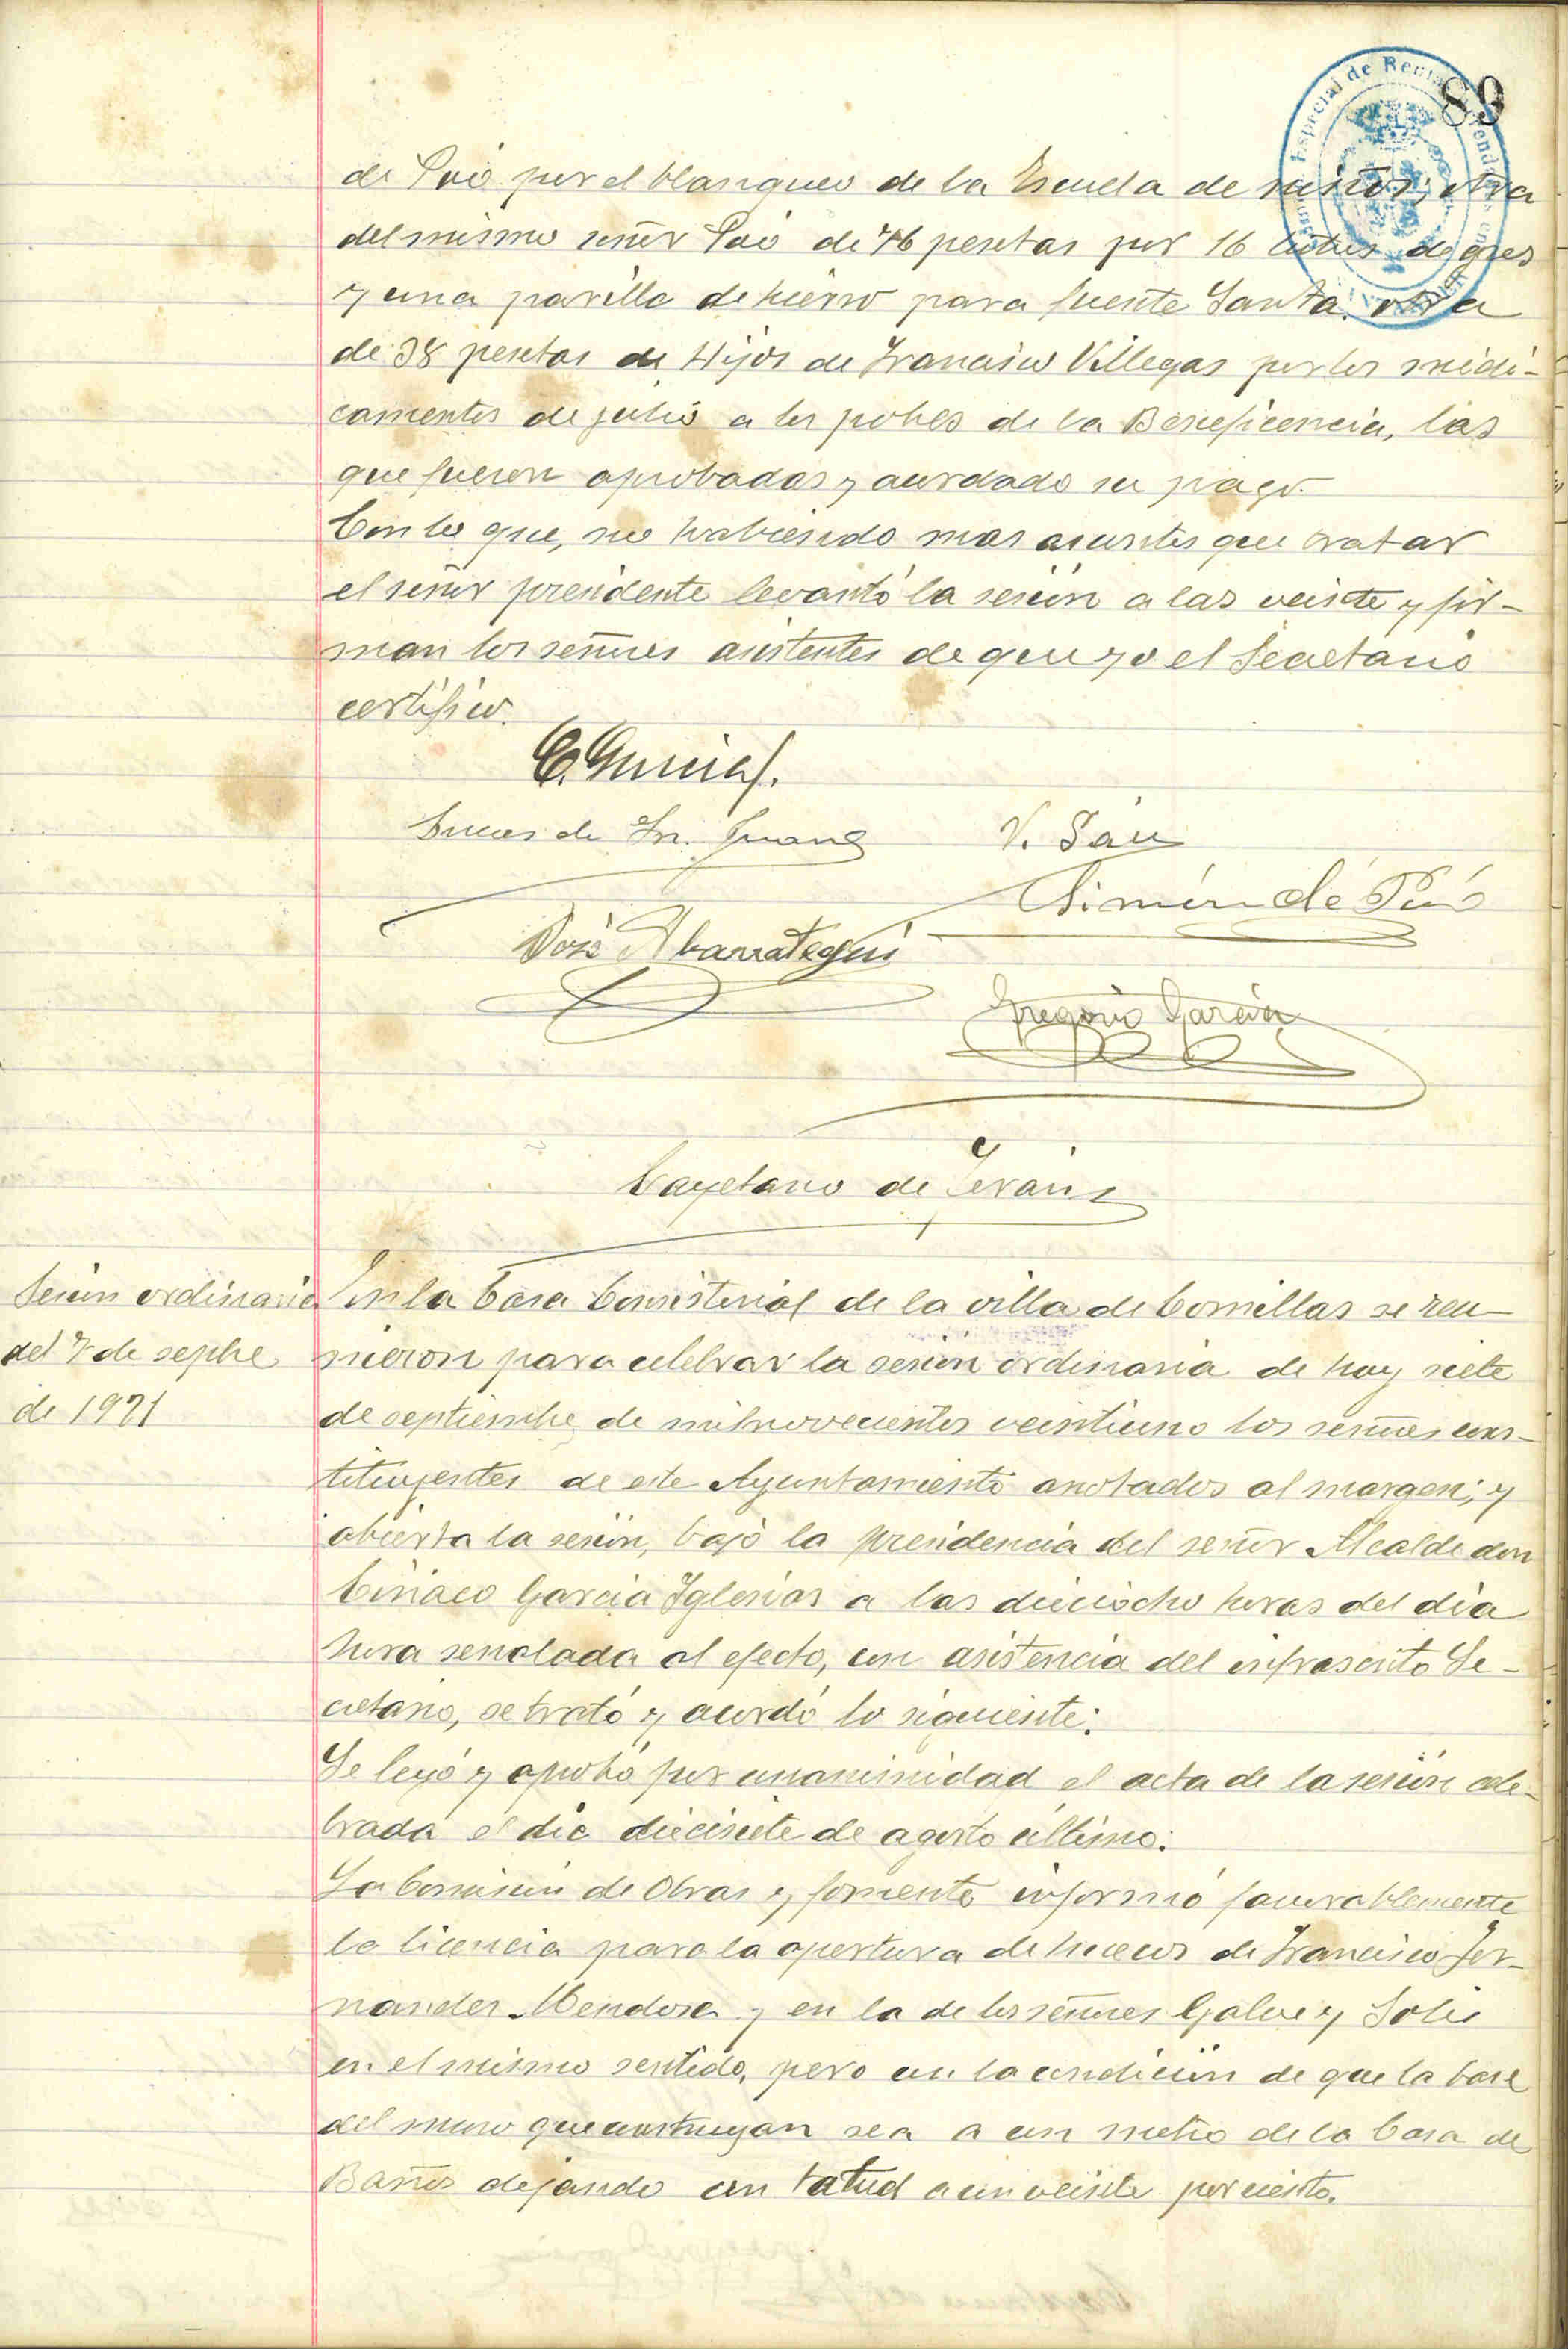 89
de Poó por el blanqueo de la Escuela de niños; otra
del mismo señor Poó de 46 pesetas por 16 de gres
y una parilla de hierro para fuente Santa. otra
de 38 pesetas de Hijos de Francisco Villegas por los medi-
camentos de julio a los pobres de la Beneficencia, las
que fueron aprobadas y acordado su pago.
Con lo que, no habiendo mas asuntos que tratar
el señor presidente levantó la sesión a las veinte y fir-
man los señores asistentes de que yo el Secretario
certifico.
C. García
de Sn. Juan
V. Sáu
Simón de Poó
José Abarrategui
Gregorio García
Cayetano de Terán
Sesión ordinaria
del 7 de sepbre
de 1921
En la Casa Consistorial de la villa de Comillas se reu-
nieron para celebrar la sesión ordinaria de hoy siete
de septiembre de mil novecientos veintiuno los señores cons-
tituyentes de este Ayuntamiento anotados al margen; y
abierta la sesión, bajo la presidencia del señor Alcalde don
Ciriaco García Iglesias a las dieciocho horas del día
hora señalada al efecto, con asistencia del infrascrito Se-
cretario, se trató y acordó lo siguiente:
Se leyó y aprobó por unanimidad el acta de la sesión cele-
brada el día diecisiete de agosto último.
La Comisión de Obras y fomento informó favorablemente
la licencia para la apertura de huecos de Francisco Fer-
nandez Mendoza y en la de los señores Galve y Solis
en el mismo sentido, pero con la condición de que la base
del muro que construyan sea a un metro de la Casa de
Baños dejando un talud a un veinte por ciento.